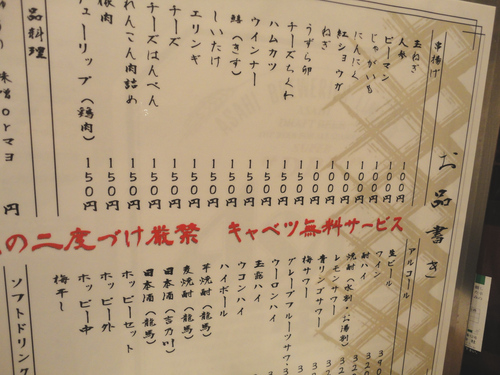 お品書き
串揚げ
玉ねぎ 100円
人参 100円
ピーマン 100円
じゃがいも 100円
にんにく 100円
紅ショウガ 100円
ねぎ 100円
うずら卵 150円
チーズちくわ 150円
ハムカツ 150円
ウインナー 150円
鱚(きす) 150円
しいたけ 150円
エリンギ 150円
チーズ 150円
チーズはんぺん 150円
れんこん肉詰め 150円
豚肉 150円
チューリップ(鶏肉) 150円
一品料理
味噌orマヨ
円
の二度づけ厳禁 キャベツ無料サービス
アルコール
生ビール
ワイン
酎ハイ
焼酎(水割・お湯割)
レモンサワー
青リンゴサワー
梅サワー
グレープフルーツサワー
ウーロンハイ
玉露ハイ
ウコンハイ
ハイボール
芋焼酎(龍馬)
麦焼酎(龍馬)
日本酒(吉乃川)
日本酒(龍馬)
ホッピーセット
ホッピー外
ホッピー中
梅干し
ソフトドリンク